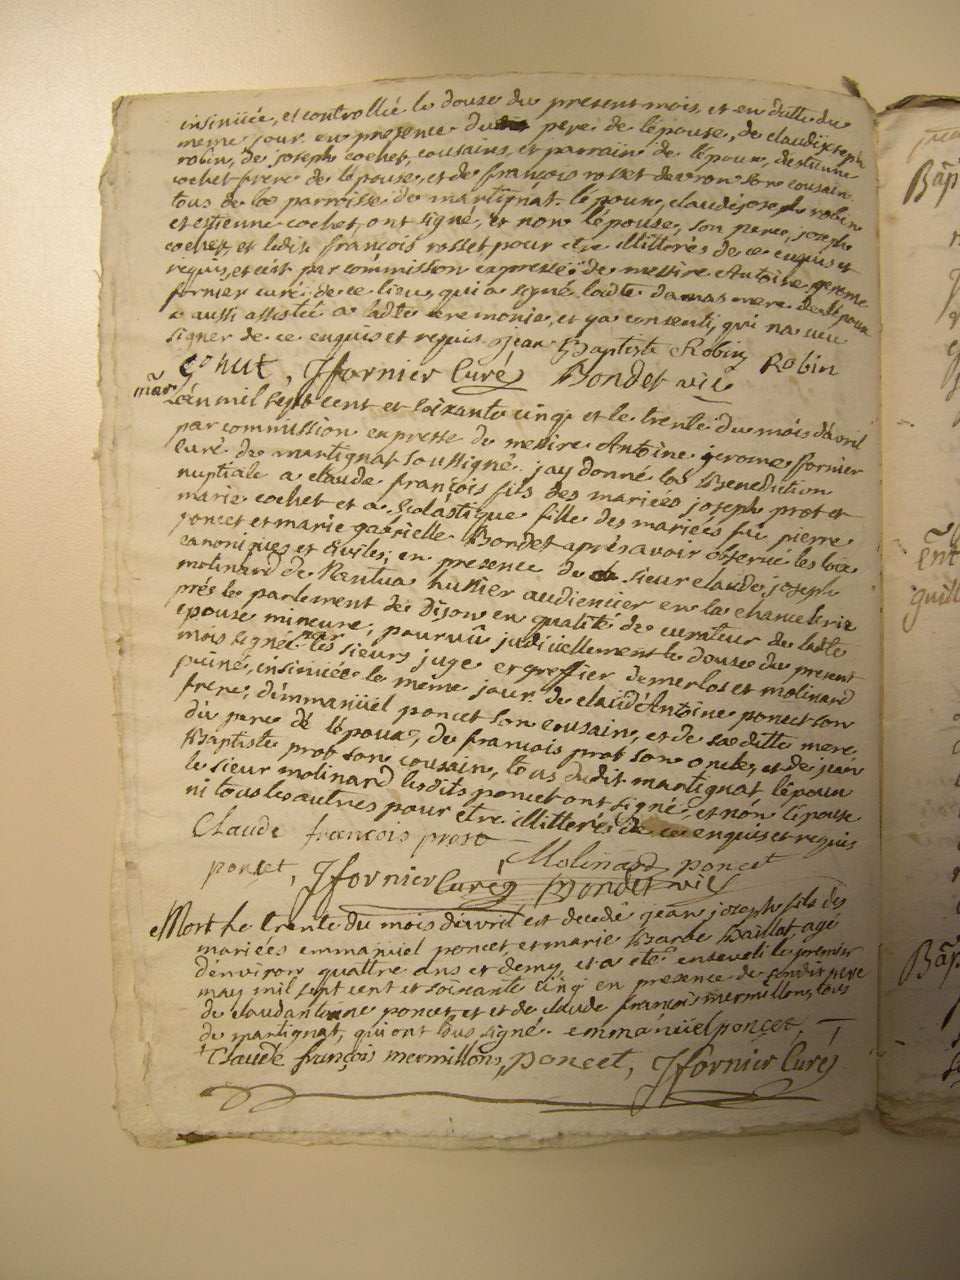 insinüée, et controllée le douse du present mois, et en datte du
meme jour en presence du pere de l'épouse, de claudejoseph
robin, de joseph cochet, cousains, et parrain de l'époux, destienne
cochet frere de l'épouse, et de françois rosset daron son cousain
tous de ce parroisse de martignat. l'époux, claudejoseph robin
et estienne cochet, ont signé, et non l'épouse, son pere, joseph
cochet, et ledit françois rosset pour etre illitterés de ce enquis et
requis, et c'est par commission expresse de messire Antoine gerome
fornier curé de ce lieu, qui a signé, ladte damas mere de l'époux
a aussi assistée a ladte ceremonie, et y a consenti, qui n'a sceu
signer de ce enquis et requis. jean Baptiste Robin Robin
Cohut, Jfornier Curé Bondet vic
mar L'an mil sept cent et soixante cinq et le trente du mois d'avril
par commission expresse de messire Antoine gerome fornier
curé de martignat soussigné, j'ay donné la Benediction
nuptiale a claude françois fils des mariés joseph prost et
marie cochet et a scolastique fille des mariés fu pierre
poncet et marie gabrielle Bondet après avoir observé les loix
canoniques et civiles; en presence de sieur claude joseph
molinard de Nantua huissier audiencier en la chancelerie
prés le parlement de Dijon en qualité de curateur de ladte
epouse mineure, pourvû judiciellement le douse du present
mois signé par les sieurs juge et greffier demerlos et molinard
puiné, insinüée le même jour. de claud'Antoine poncet son
frere, d'immanüel poncet son cousain, et de sa ditte mere
du pere de l'époux, de francois prost son oncle, et de jean
Baptiste prost son cousain, tous dudit martignat l'époux
le sieur molinard lesdits poncet ont signé, et non l'épouse
ni tous les autres pour être illitterés de ce enquis et requis
Claude francois prost
poncet, Molinard poncet
Jfornier Curé Bondet vic
Mort Le trente du mois d'avril est decedé jean joseph fils des
mariés emmanüel poncet, et marie Barbe Baillat, agé
d'environ quattre ans et demy, et a été enseveli le premier
may mil sept cent et soixante cinq en presence de sondit pere
de claudantoine poncet, et de claude françois mermillons, tous
de martignat, qui ont tous signé. emmanüel poncet,
Claude françois mermillons, poncet, Jfornier Curé